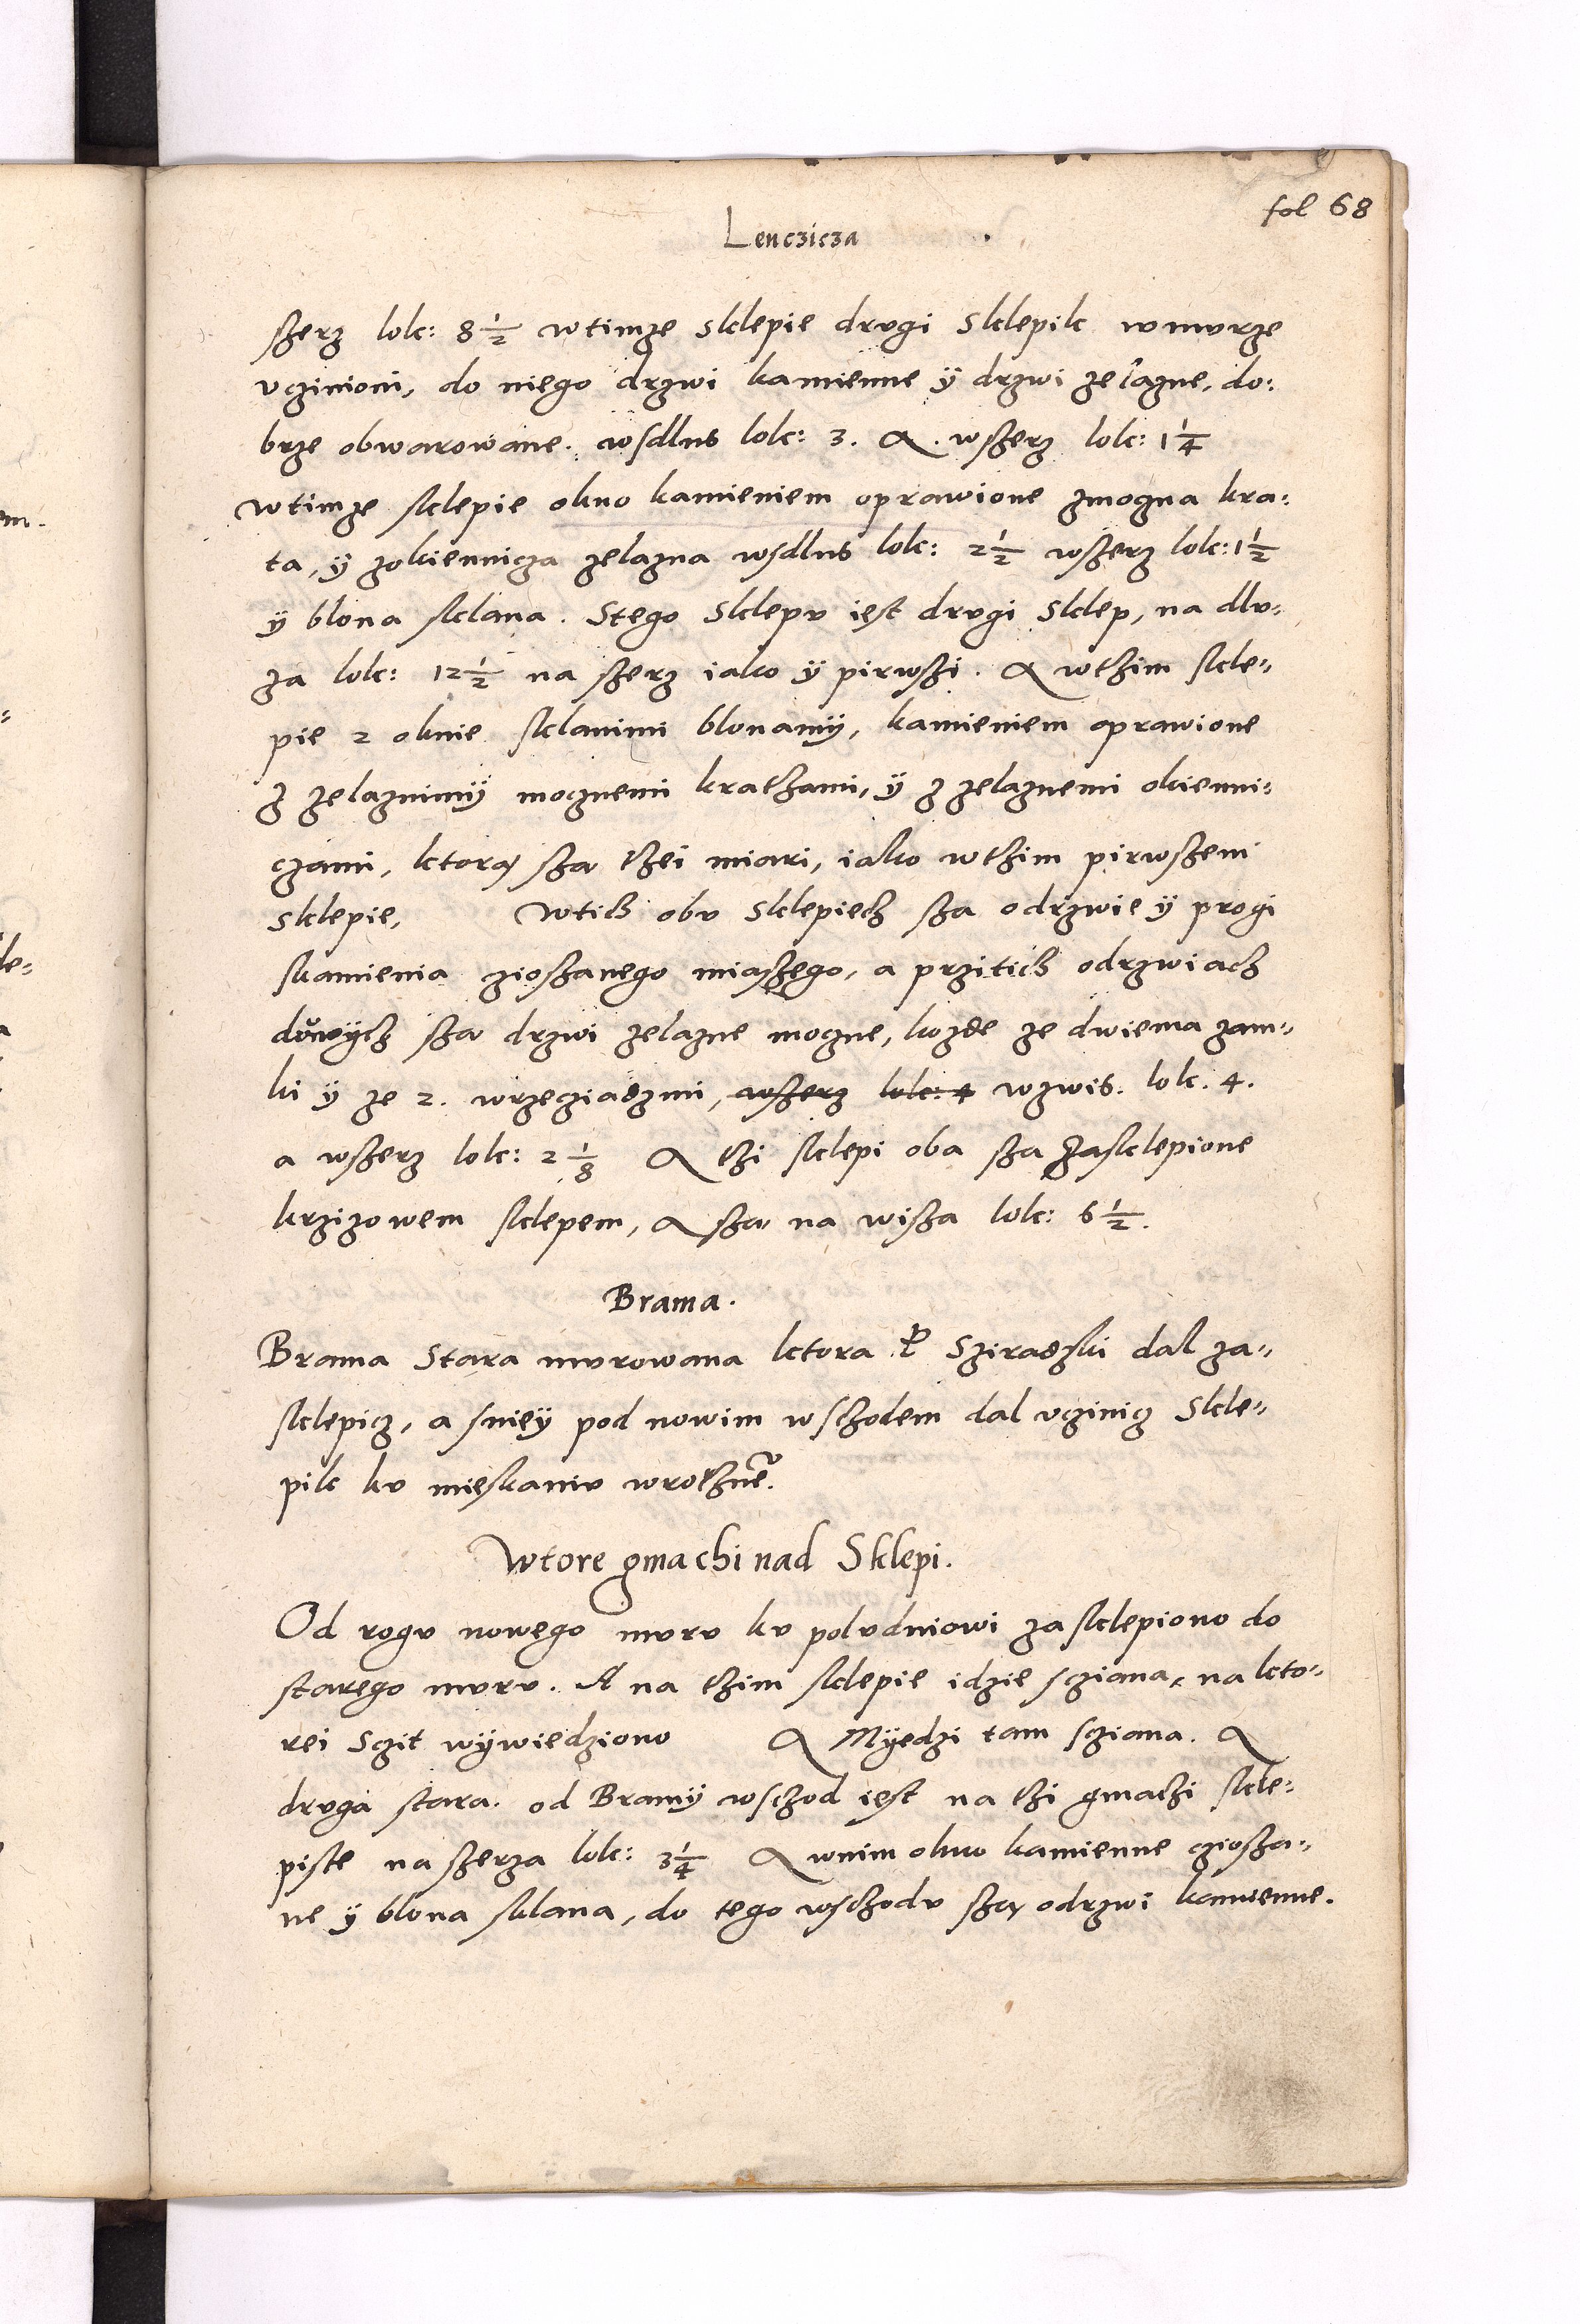 fol 68
Lenczicza
szerz lok: 8 1/2 wtimze sklepie drugi Sklepik wmurze
uczinioni, do niego drzwi kamienne ÿ drzwi zelazne, do:
brze obwarowane. wsdlus lok: 3. A. wszerz lok: 1 1/4
wtimze sklepie okno kamieniem oprawione zmozna kra:
ta, y zokiennicza zelazna wsdlus lok: 2 1/2 wszerz lok: 1 1/2
y blona sklana. Stego Sklepu iest drugi Sklep, na dlu-
za lok: 12 1/2 na szerz iako ÿ pirwszi. A wthim skle-
pie 2 oknie sklanimi blonamÿ, kamieniem oprawione
z zelaznimÿ mocznemi krathami, ÿ z zelaznemi okienni:
czami, ktorą sza thei miari, iako wthim pirwszem
sklepie, Wtich obu sklepiech sza odrzwie ÿ progi
skamienia cziosanego miaszego, a przitich odrzwiach
duwÿch sza drzwi zelazne moczne, kozde ze dwiema zam-
ki ÿ ze 2. wrzecziadzmi, wszerz lok: 4 wzwis. lok. 4.
a wszerz lok: 2 1/8 A thi sklepi oba sza zasklepione
krzizowem sklepem, A sza na wisza lok: 6 1/2.
Brama.
Brama Stara murowana ktora P Sziradzski dal za-
sklepicz, a sniey pod nowim wschodem dal uczinicz Skle-
pik ku mieskaniu wrothnē.
Wtore gmachi nad Sklepi.
Od rogu nowego muru ku poludniowi zasklepiono do
starego muru. A na thim sklepie idzie sciana, na kto-
rei Sczit wÿwiedziono A Mÿedzi tam scziana. A
druga stara. od Bramÿ wschod iest na thi gmachi skle:
piste na szerza lok: 3 1/4 A wnim okno kamienne cziosza-
ne ÿ blona sklana, do tego wschodu szą odrzwi kamienne.